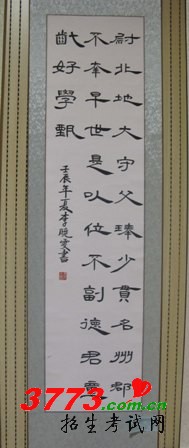 尉北地大守父琫少貫名州郡
不幸早世是以位不副德君童
齔好學甄
壬辰年夏李晓雯書
3773.com.cn
招生考试网